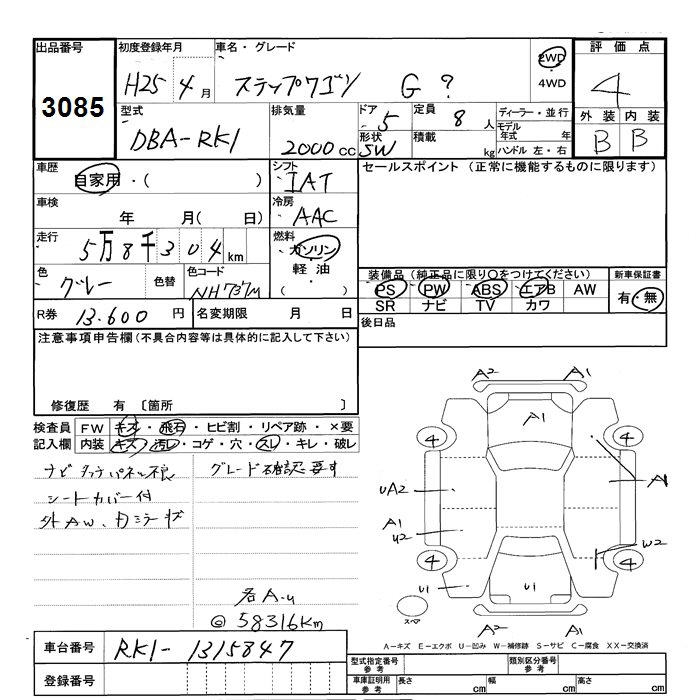 出品番号 初度登録年月 車名・グレード 2WD 評価点
3085 H25年4月 ステップワゴン G ? 4WD 4
型式 排気量 ドア 5 定員 8人 ディーラー・並行 外装 内装
DBA-RK1 2000cc 形状 SW 積載 kg モデル年式 年式 ハンドル 左・右 B B
車歴 自家用・( ) シフト IAT セールスポイント (正常に機能するものに限ります)
車検 年 月( 日) 冷房 AAC
走行 5万8千304km 燃料 ガソリン・軽油 ( )
色 グレー 色替 色コード NH737M 装備品 (純正品に限り○をつけてください) 新車保証書
PS PW ABS エアB AW 有・無
SR ナビ TV カワ
R券 13.600円 名変期限 月 日 後日品
注意事項申告欄 (不具合内容等は具体的に記入して下さい)
修復歴 有 〔箇所 〕
検査員 FW キズ・飛石・ヒビ割・リペア跡・×要
記入欄 内装 キズ・汚れ・コゲ・穴・スレ・キレ・破レ
ナビタッチパネル不良 グレード確認要す
シートカバー付
外AW、
各A・u
@58316km
A2 A1
A1
4 4
uA2 A1
A1
u2 W2
4 4
u1 u1
スペア
A2 A1
A-キズ E-エクボ U-凹み W-補修跡 S-サビ C-腐食 XX-交換済
車台番号 RK1-1315847
登録番号
型式指定番号 参考 類別区分番号 参考
車庫証明用 参考 長さ cm 幅 cm 高さ cm